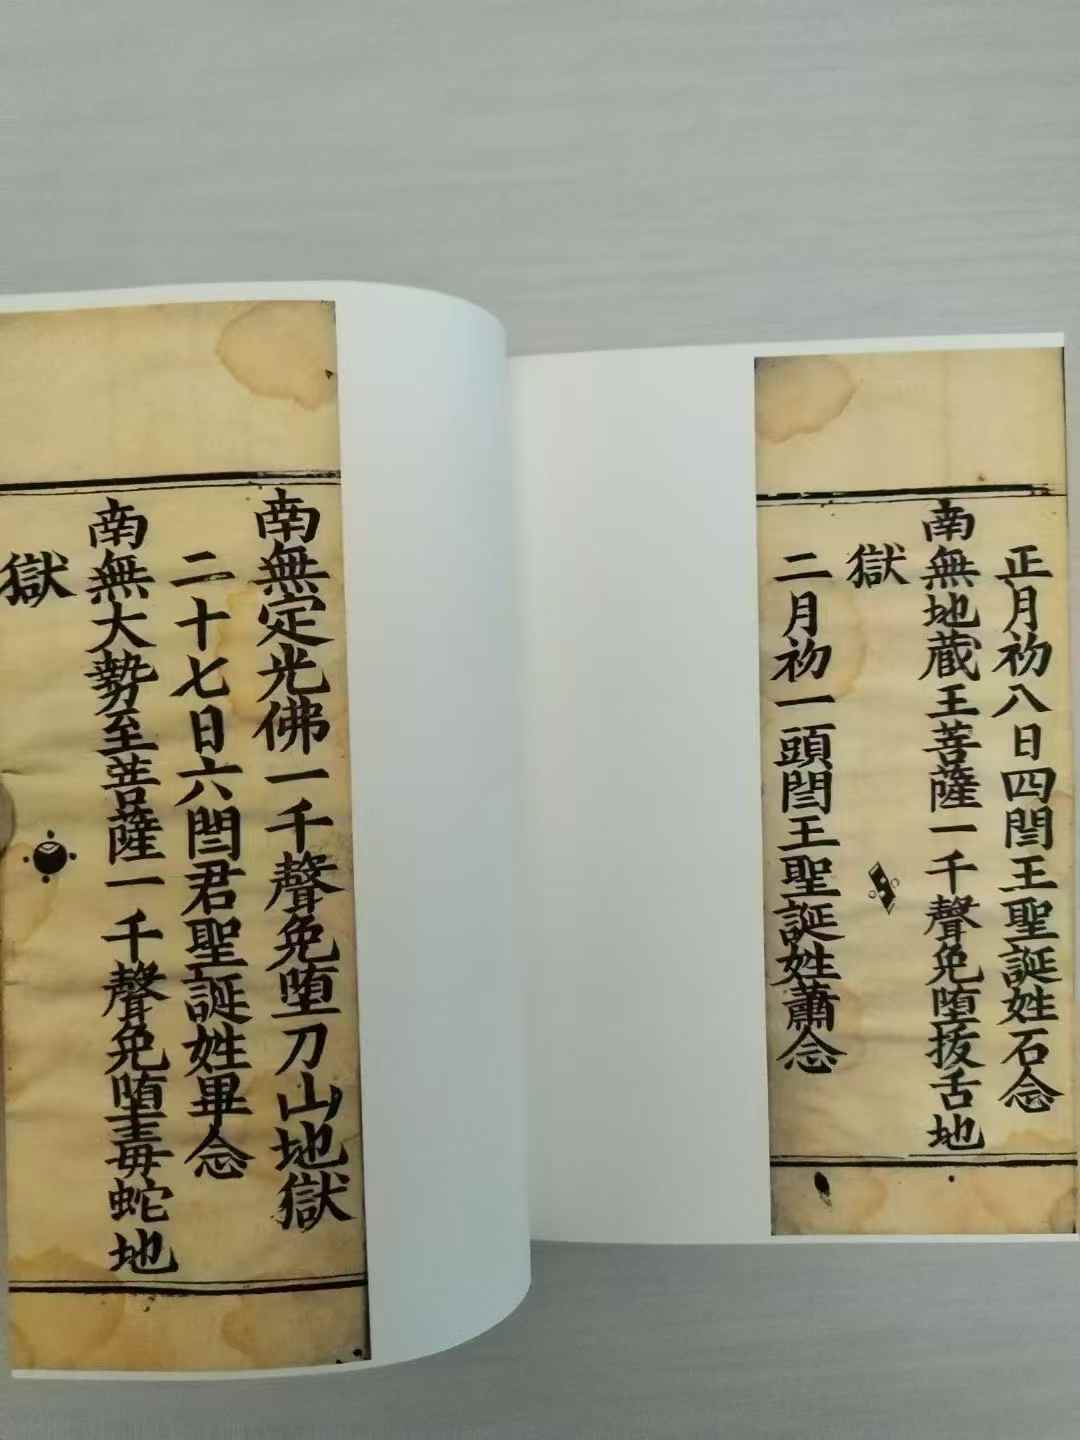 正月初八日四閆王聖誕姓石念
南無地蔵王菩薩一千聲免堕拔舌地
獄
二月初一頭閆王聖誕姓蕭念
南無定光佛一千聲免堕刀山地獄
二十七日六閆君聖誕姓畢念
南無大勢至菩薩一千聲免堕毒蛇地
獄